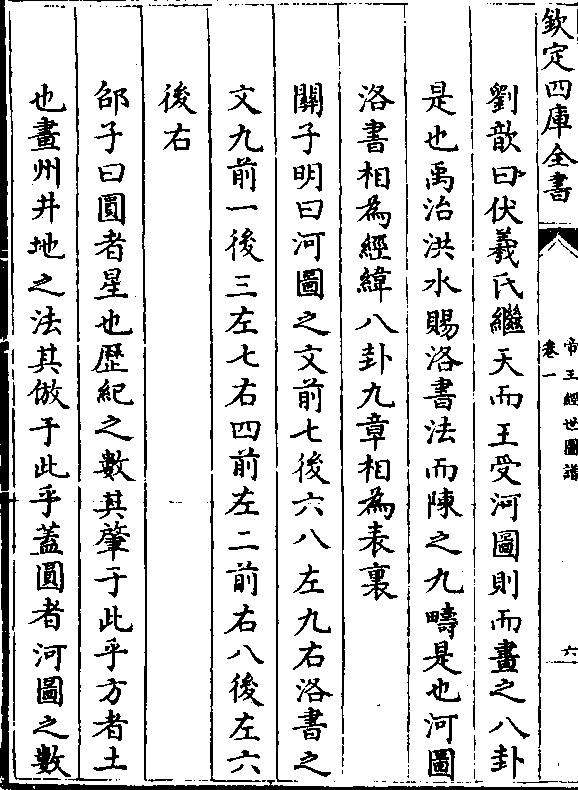 欽定四庫全書
帝王經世圖譜
卷一
六
劉歆曰伏羲氏繼天而王受河圖則而畫之八卦
是也禹治洪水賜洛書法而陳之九疇是也河圖
洛書相為經緯八卦九章相為表裏
關子明曰河圖之文前七後六八左九右洛書之
文九前一後三左七右四前左二前右八後左六
後右
邵子曰圓者星也歷紀之數其肇于此乎方者土
也畫州井地之法其倣于此乎蓋圓者河圖之數